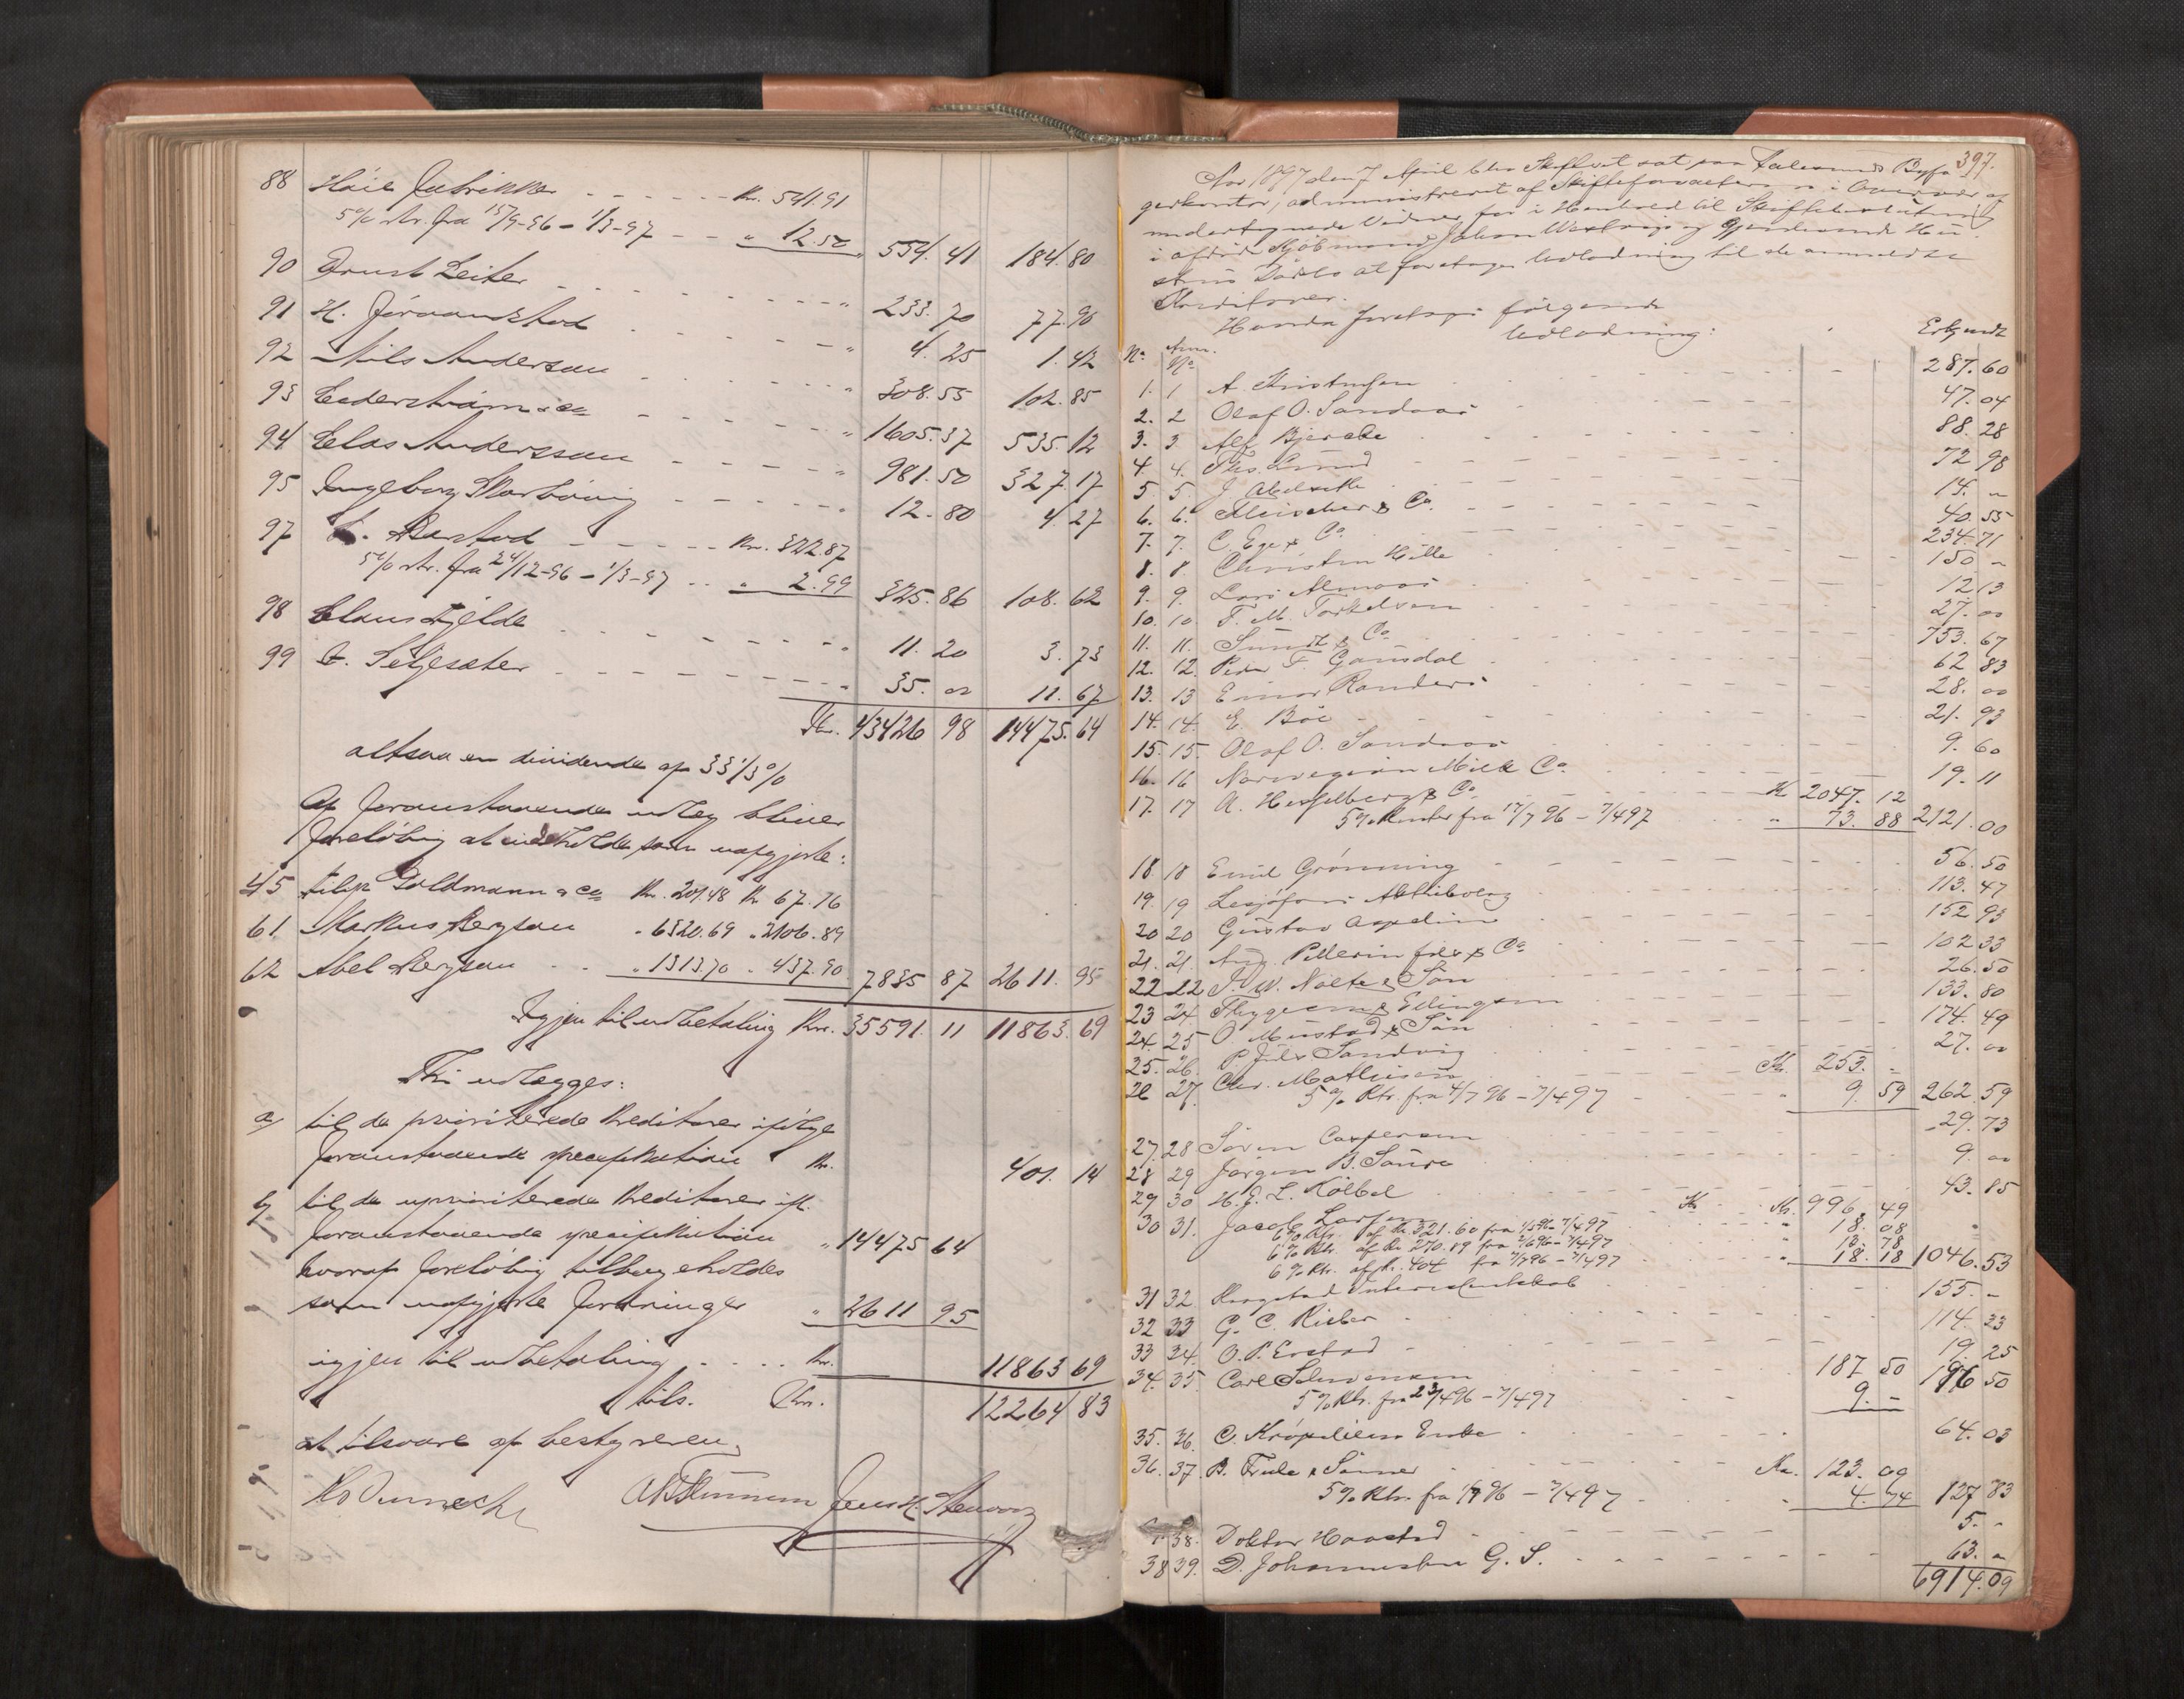 88 Høie Fabrikker - - - - - - Kr. 541.91
5% rtr. fra 15/9-96 - 1/3-97 - - " 12.50 554.41 184.80
90 Ernst Leiter - - - - - - - - " 233.70 77.90
91 H. - - - - - " 4.25 1.42
92 Nils Andersson - - - - - " 308.55 102.85
93 Cederström & Co - - - - - " 1605.37 535.12
94 Claes Andersson - - - - - " 981.50 327.17
95 Ingeborg - - - - - " 12.80 4.27
97 - - - - - Kr. 322.87
5% rtr. fra 24/12-96 - 1/3-97 - - " 2.99 325.86 108.62
98 Claus Gjelde - - - - - - " 11.20 3.73
99 Seljesæter - - - - - - " 35. 00 11.67
Kr. 43426 98 14475.64
altsaa en dividende af 33 1/3 %
Af foranstaaende udlæg bliver
foreløbig at indeholde som uafgjorte:
45 Filip Goldmann & Co Kr. 201.48 Kr 67.16
61 Markus Bergson " 6320.69 " 2106.89
62 Abel Bergson - - " 1313.70 " 437.90 7835 87 2611.95
Igjen til udbetaling Kr. 35591.11 11863.69
Thi udlægges:
a, til de prioriterede Kreditorer ifølge
foranstaaende specifikation Kr. 401.14
b, til de uprioriterede Kreditorer ifl.
foranstaaende specifikation " 14475 64
hvoraf foreløbig tilbageholdes
som uafgjorte fordringer " 2611 95
igjen til udbetaling - - - Kr. 11863 69
tils. Kr. 12264 83
at tilsvare af bestyreren.
Jens H.
397.
Aar 1897 den 7 April blev Skifteret sat paa Aalesunds Byfo-
gedkontor, administreret af Skifteforvalteren i Overvær af
undertegnede Vidner, for i Henhold til Skiftebeslutning
i afdøde Kjøbmand Johan og Hu-
strus Dødsbo at foretage Udlodning til de anmeldte
Kreditorer.
Handa foretoges følgende
Udlodning:
No Anm. No Erkjendt
1. 1 A. Kristensen - - 287.60
2. 2 Olaf O. Sandaas - - 47.04
3. 3 Alf Bjercke - - 88.28
4. 4. Ths. Lund - - 72 98
5. 5. J. - - 14. -
6. 6. Fleischer & Co. - - 40.55
7. 7. C. Ege & Co - - 234.71
8. 8. Christen Hille - - 150 -
9. 9. Lars Almaas - - 12 13
10. 10. F. M. Torkelsen - - 27. 00
11. 11. Sundt & Co - - 753.67
12. 12. Peder F. Gamsdal - - 62 83
13. 13 Einar Randers - - 28. 00
14. 14. E. Böe - - 21. 93
15. 15. Olaf O. Sandaas - - 9. 60
16. 16 Norwegian Milk Co. - - 19. 11
17. 17 A. Hesselberg & Co. - - K 2047. 12
5% Renter fra 17/7 96 - 7/4 97 " 73. 88 2121. 00
18. 18 Emil Grønning - - 56. 50
19. 19 Lesjöfors Aktiebolag - - 113. 47
20 20 Gustav - - 152 93
21. 21. Aug. Pellerin fils & Co - - 102 33
22 22 J. W. Nölte & Sön - - 26. 50
23 24 Thygesen & Ellingsen - - 133. 80
24 25 O. Mustad & Sön - - 174. 49
25. 26. P. Juls Sandvig - - 27. 00
26 27. Chr. Mathiesen - - Kr. 253. -
5% Rtr. fra 4/7 96 - 7/4 97 - - " 9. 59 262. 59
27. 28 Sören Caspersen - - 29. 73
28 29 Jørgen B. - - 9. 00
29 30 H. E. L. Kölbel - - 43. 85
30 31. Jacob Larsen - - Kr. 996. 49
6% Rtr. af Kr 321.60 fra 96 - 7/4 97 " 18. 08
6% Rtr. af Kr. 270.89 fra 96 - 7/4 97 " 13. 78
6% Rtr. af Kr. 404 fra 96 - 7/4 97 " 18. 18 1046.53
31 32 Interessentskab - - 155. -
32 33 G. C. Rieber - - 114. 23
33 34. O. P. Erstad - - 19. 25
34. 35. Carl - - 187 50 196 50
5% Rtr. fra 23/4 96 - 7/4 97 9. -
35. 36. C. Krøpelien Enke - - 64. 03
36. 37. B. Friele & Sönner - - Kr. 123. 09
5% Rtr. fra 96 - 7/4 97 " 4. 74 127 83
38. Doktor Haastad - - 5. -
38 39. D. Johannessen G. S. - - 63. -
6914.09